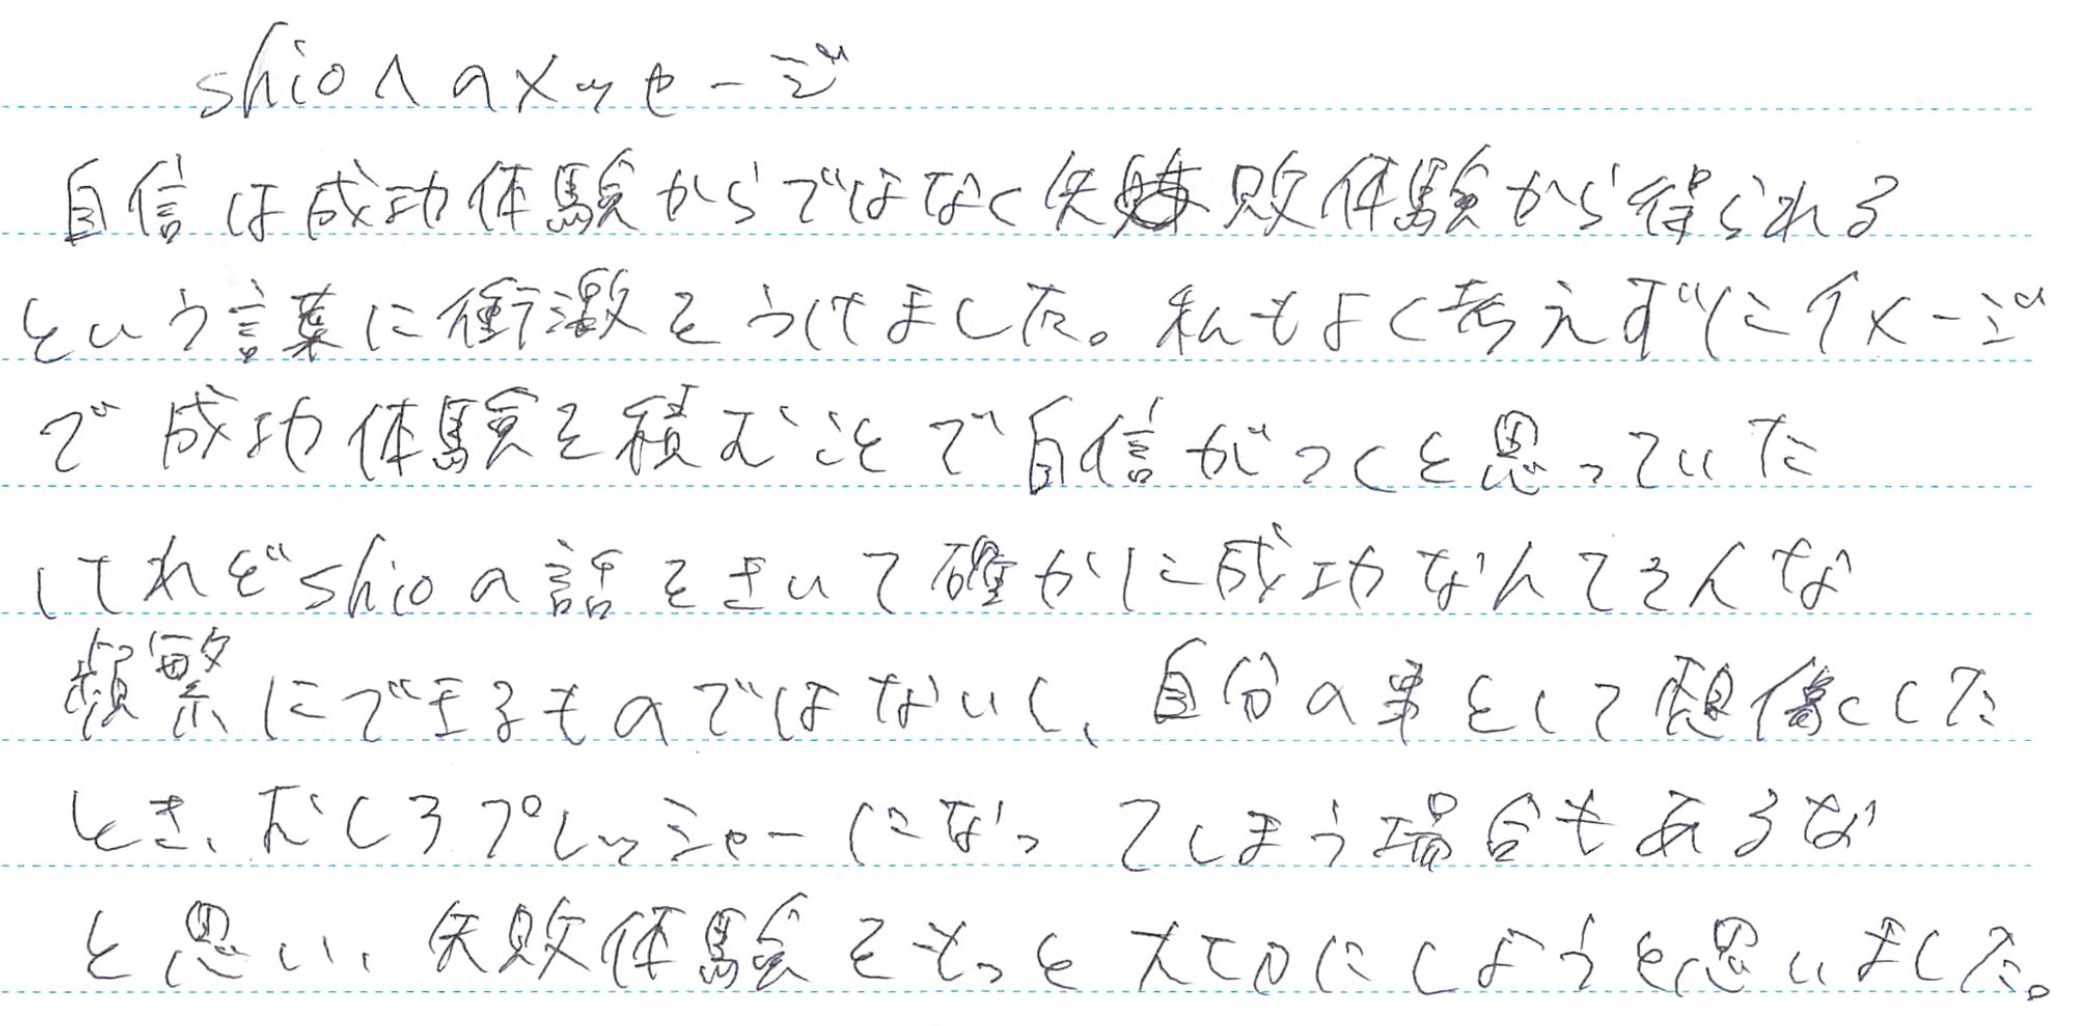 shioへのメッセージ
自信は成功体験からではなく失敗体験から得られる
という言葉に衝激をうけました。私もよく考えずにイメージ
で成功体験を積むことで自信がつくと思っていた
けれどshioの話をきいて確かに成功なんてそんな
頻繁にできるものではないし、自分の事として想像した
とき、むしろプレッシャーになってしまう場合もあるな
と思い、失敗体験をもっと大切にしようと思いました。